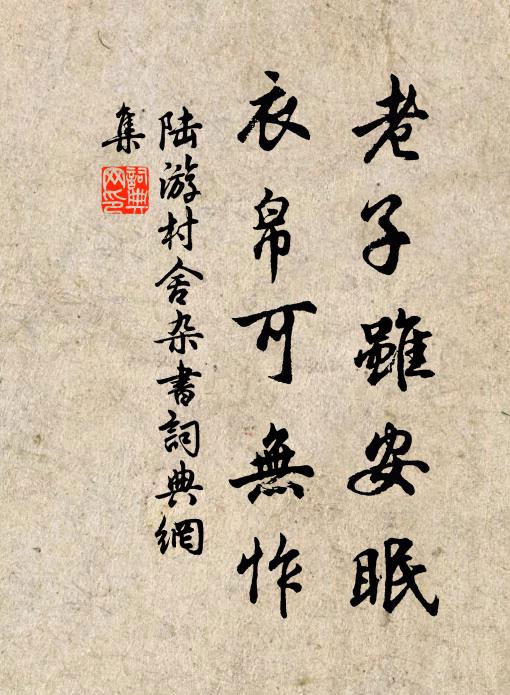 老子雖安眠
衣帛可無怍
陆游村舍杂書詞典網
集
詞典
网印